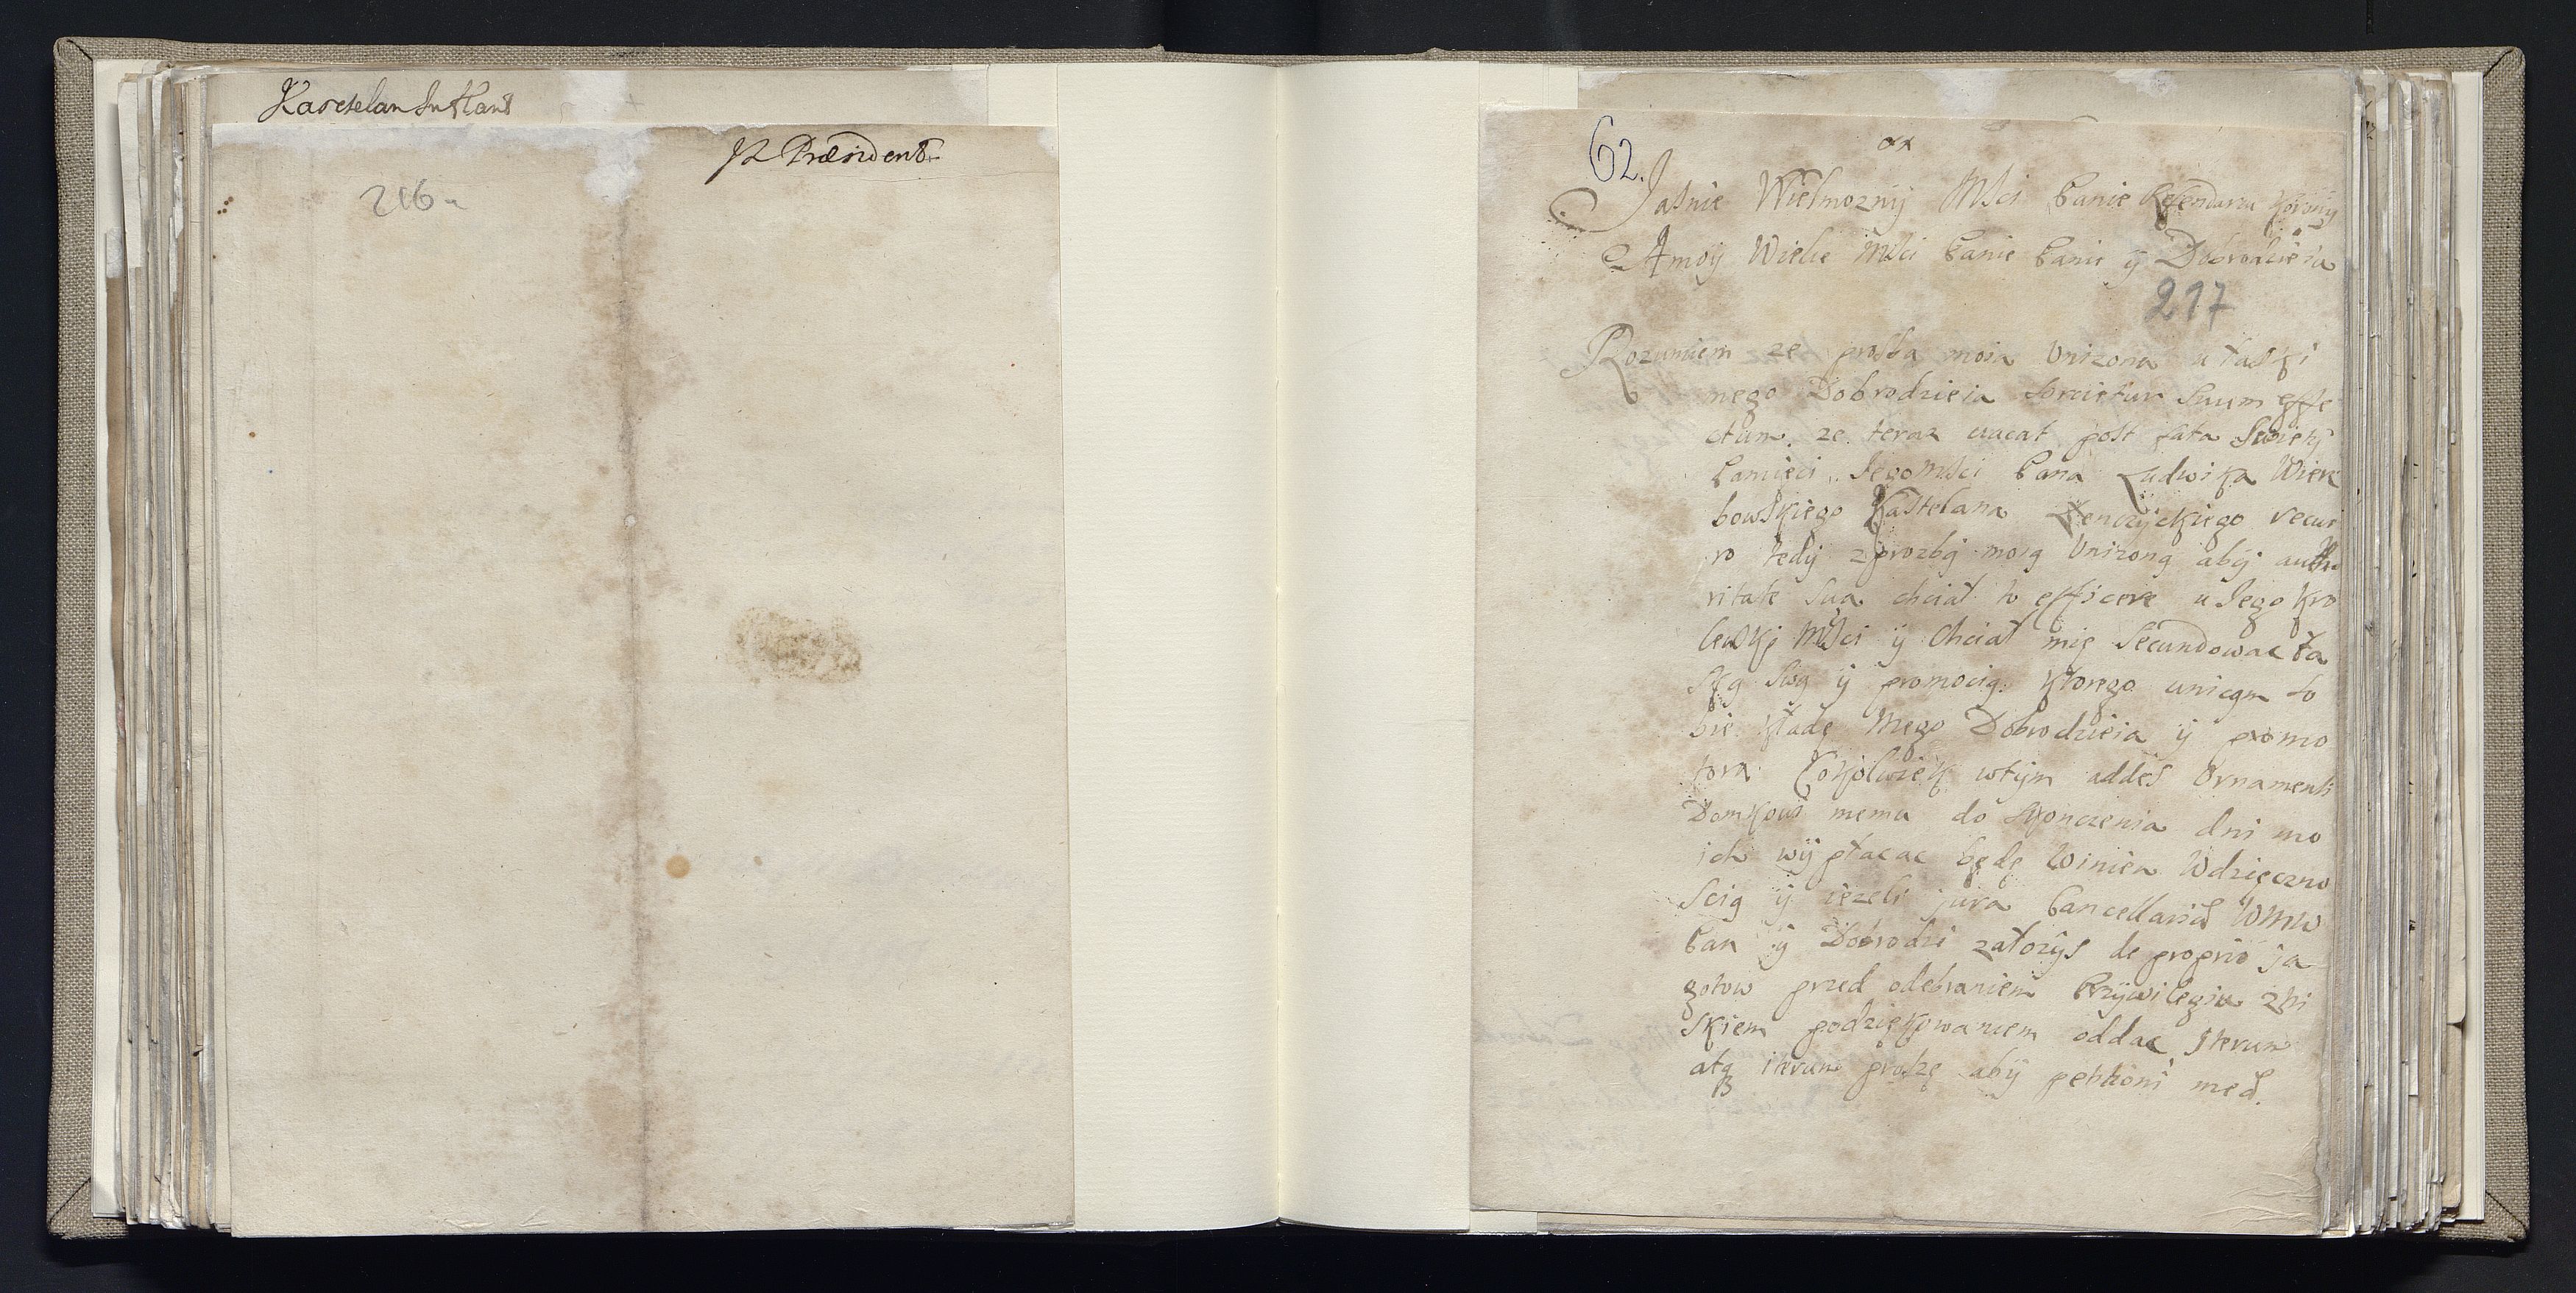 Kasztelan Inflant
JP Præsident
216
62.
Jasnie Wielmozny Msci Panie Referendarzu Koronny
A moy Wielce Msci Panie Panie y Dobrodzieiu
217
Rozumiem ze prosba moia Unizona u łaski
mego Dobrodzieia sorcietur suum effe
ctum. ze teraz vacat post fata Swiętey
Pamięci Jego Msci Pana Ludwika Wierz
bowskiego Kastelana Łenczyckiego recur
ro tedy z prozbą moią Unizoną aby autho
ritate sua chciał to efficere u Jego Kro
lewskj Msci y Chciał mię Secundowac ła
ską swą y promocią. Ktorego unicam so
bie kładę Mego Dobrodzieia y promo
tora Cokolwiek wtym addes Ornamenti
Domkowi memu do skonczenia dni mo
ich wypłacac będę Winien Wdzięczno
scią y iezeli jura Cancellariæ WMW
Pan y Dobrodzi załozys de proprio ja
gotow przed odebraniem Przywilegiu z ni
skiem podziękowaniem oddac Iterum
atq iterum proszę aby petitioni meæ.